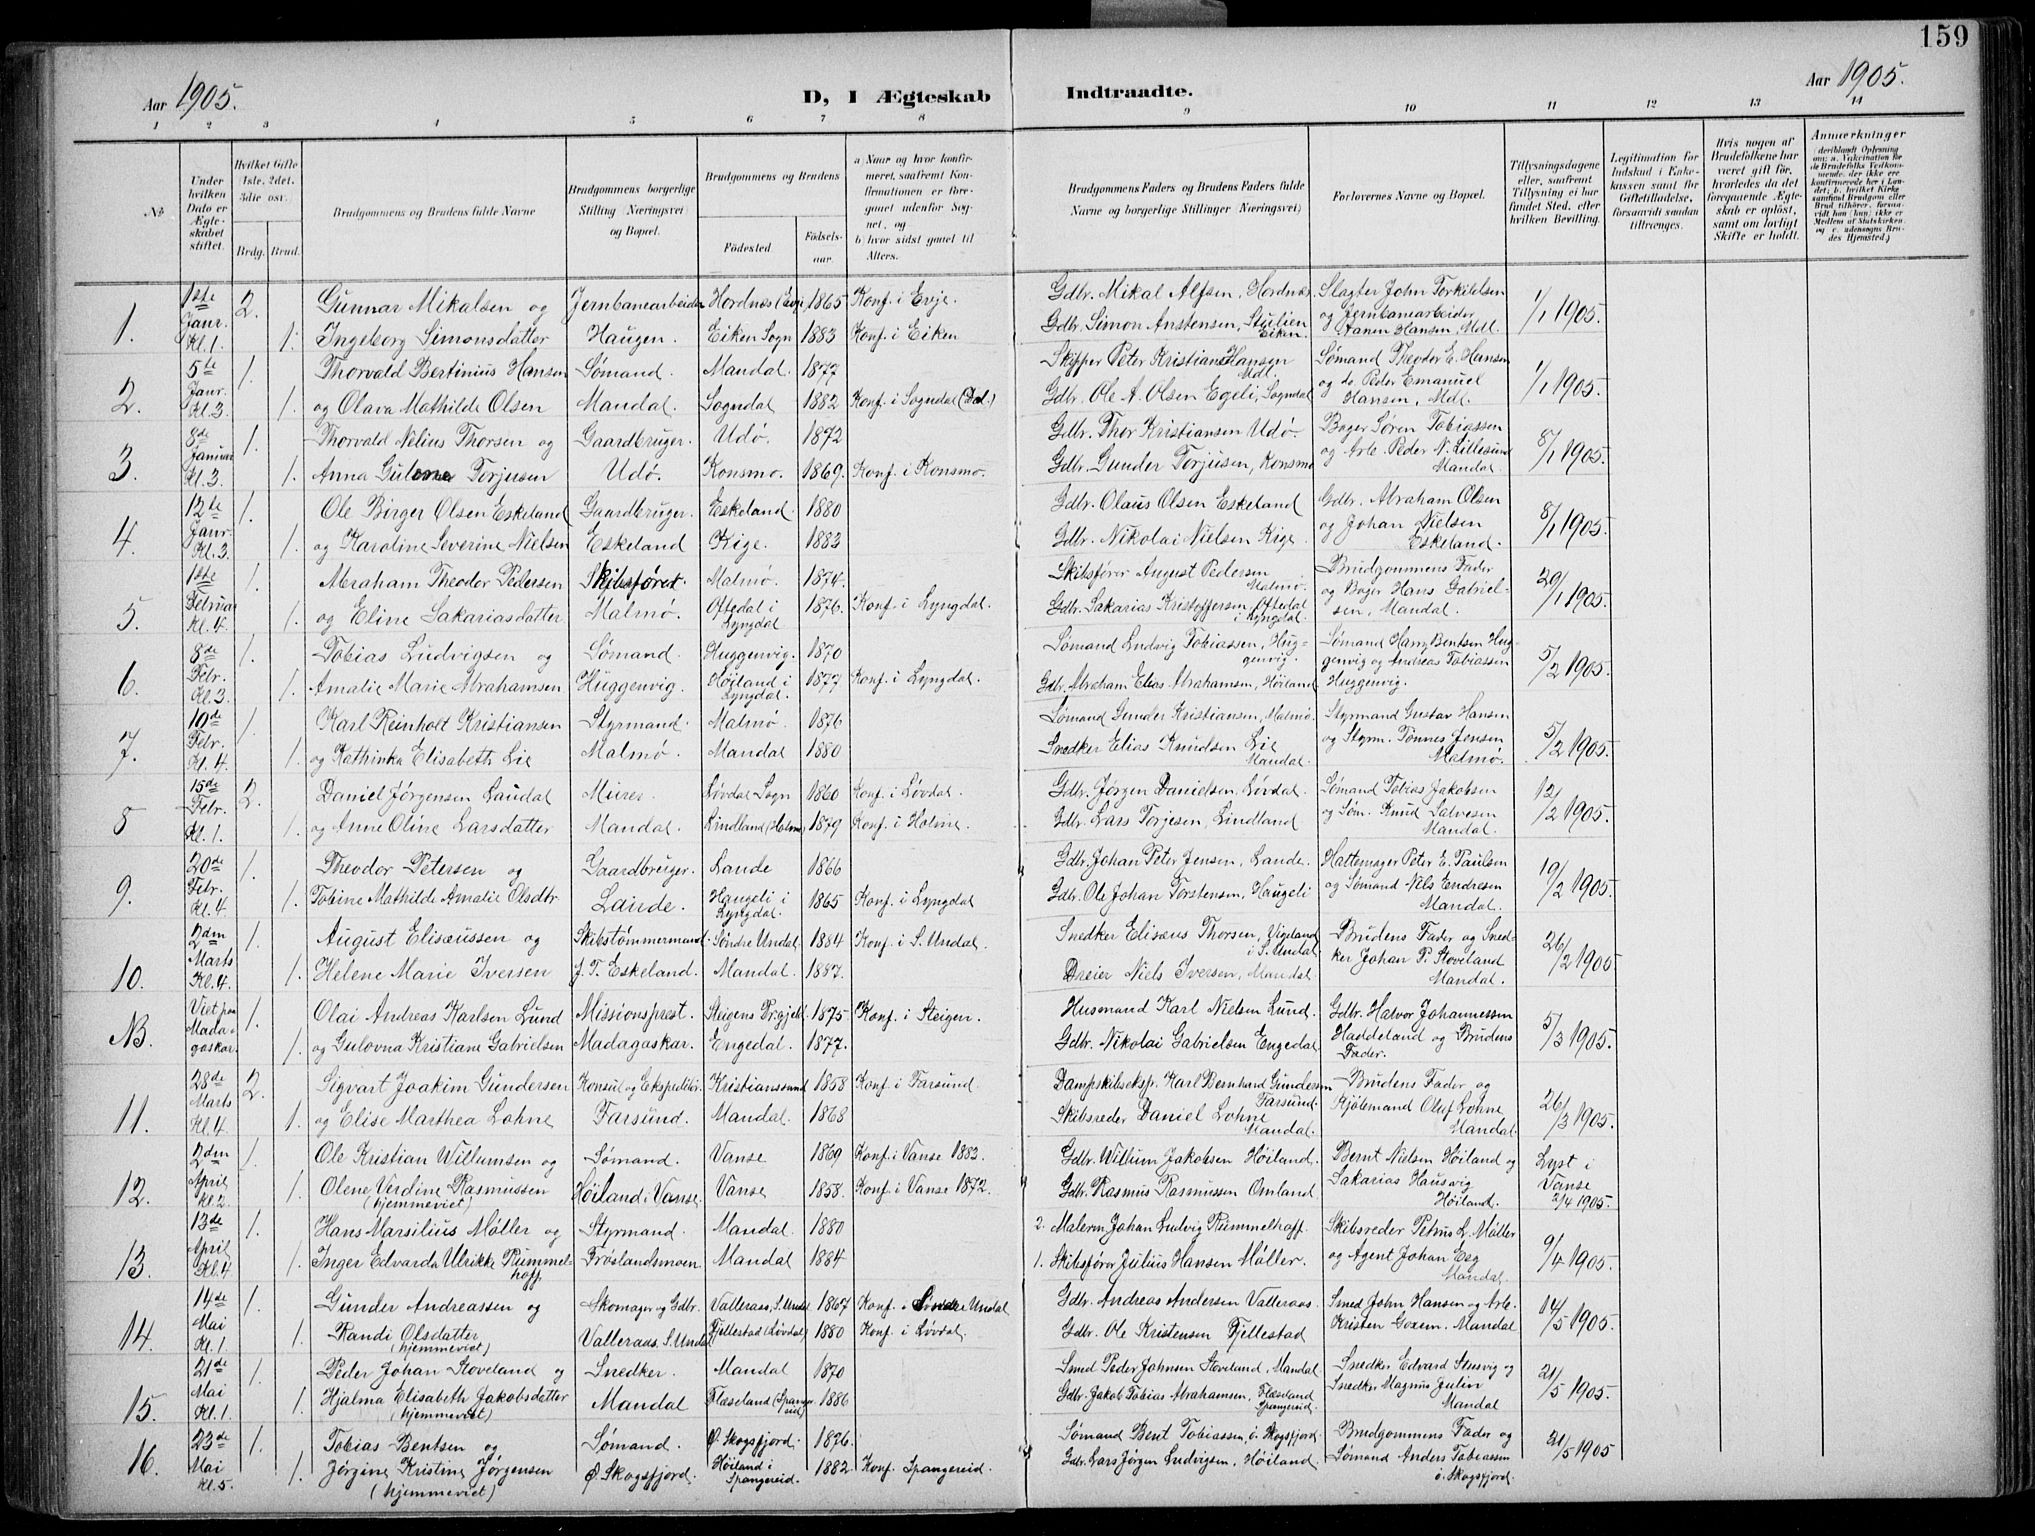 159
Aar 1905.
D, I Ægteskab Indtraadte.
Aar 1905.
1 2 3 4 5 6 7 8 9 10 11 12 13 14
№
Under hvilken Dato er Ægteskabet stiftet.
Hvilket Gifte (1ste, 2det, 3die osv.
Brdg. Brud.
Brudgommens og Brudens fulde Navne
Brudgommens borgerlige Stilling (Næringsvei) og Bopæl.
Brudgommens og Brudens
Födested.
Födselsaar.
a) Naar og hvor konfirmeret, saafremt Konfirmationen er foregaaet udenfor Sognet, og
b) hvor sidst gaaet til Alters.
Brudgommens Faders og Brudens Faders fulde Navne og borgerlige Stillinger (Næringsvei)
Forlovernes Navne og Bopæl.
Tillysningsdagene eller, saafremt Tillysning ei har fundet Sted, efter hvilken Bevilling.
Legitimation for Indskud i Enkekassen samt for Giftetilladelse, forsaavidt saadan tiltrænges.
Hvis nogen af Brudefolkene har været gift för, hvorledes da det foregaaende Ægteskab er oplöst, samt om lovligt Skifte er holdt.
Anmærkninger
1. 1ste Janr. Kl. 1. 2. Gunnar Mikalsen og Jernbanearbeider Hordnæs (Evje) 1865 Konf. i Evje. Gdbr. Mikal Alfsen, Hordnæs Slagter John Torkildsen
1. Ingeborg Simonsdatter Haugen. Eiken Sogn 1883 Konf. i Eiken Gdbr. Simon Anstensen, Eiken. og Jernbanearbeider Hansen, Mdl. 1/1 1905.
2. 5te Janr. Kl. 3. 1. Thorvald Bertinius Hansen Sømand. Mandal. 1877 Skipper Peter Kristian Hansen Mdl. Sømand Theodor E. Hansen
1. og Olava Mathilde Olsen Mandal. Sogndal 1882 Konf. i Sogndal (Dal.) Gdbr. Ole A. Olsen Egeli, Sogndal og do. Peder Emanuel Hansen, Mdl. 1/1 1905.
3. 8de Januar Kl. 3. 1. Thorvald Nelius Thorsen og Gaardbruger. Udö. 1872 Gdbr. Thor Kristiansen Udö. Bager Søren Tobiassen
1. Anna Torjusen Udö. Konsmo. 1869. Konf. i Konsmo. Gdbr. Gunder Torjusen, Konsmo og Arb. Peder N. Lillesund Mandal. 8/1 1905.
4. 12te Janr. Kl. 3. 1. Ole Birger Olsen Eskeland Gaardbruger. Eskeland. 1880 Gdbr. Olaus Olsen Eskeland Gdbr. Abraham Olsen
1. og Karoline Severine Nielsen Eskeland Kige. 1883 Gdbr. Nikolai Nielsen Kige og Johan Nielsen Eskeland. 8/1 1905.
5. 1ste Februar Kl. 4. 1. Abraham Theodor Pedersen Skibsfører. Malmø. 1874. Skibsfører August Pedersen Malmø. Brudgommens Fader
1. og Eline Sakariasdatter Malmø. Oftedal i Lyngdal 1876. Konf. i Lyngdal. Gdbr. Sakarias Kristoffersen Oftedal i Lyngdal. og Bager Hans Gabrielsen, Mandal. 29/1 1905.
6. 8de Febr. Kl. 3. 1. Tobias Ludvigsen og Sømand. Huggenvig. 1870 Sømand Ludvig Tobiassen, Huggenvig. Sømand Harry Bentsen Huggenvig og Andreas Tobiassen
1. Amalie Marie Abrahamsen Huggenvig. Høiland i Lyngdal. 1877 Konf. i Lyngdal. Gdbr. Abraham Elias Abrahamsen, Høiland Huggenvig. 5/2 1905.
7. 10de Febr. Kl. 4. 1. Karl Reinholt Kristiansen Styrmand. Malmø. 1876 Sømand Gunder Kristiansen, Malmø. Styrmand Gustav Hansen
1. og Kathinka Elisabeth Lie Malmø. Mandal 1880 Snedker Elias Knudsen Lie Mandal. og Styrm. Tønnes Jensen Malmø. 5/2 1905.
8 15de Febr. Kl. 1. 2. Daniel Jørgensen Laudal Murer Løvdal Sogn 1860 Konf. i Løvdal. Gdbr. Jørgen Danielsen, Løvdal. Sømand Tobias Jakobsen
1. og Anne Oline Larsdatter Mandal. Lindland (Holme) 1879 Konf. i Holme. Gdbr. Lars Torjesen, Lindland og Søm. Knud Salvesen Mandal. 12/2 1905.
9. 20de Febr. Kl. 4. 1. Theodor Petersen og Gaardbruger. Lande 1866 Gdbr. Johan Peter Jensen, Lande. Hattemager Peter E. Paulsen
1. Tobine Mathilde Amalie Olsdtr. Lande. Haugeli i Lyngdal. 1865 Konf. i Lyngdal Gdbr. Ole Johan Torstensen, Haugeli og Sømand Nils Endresen Mandal. 19/2 1905.
10. 2dm Marts Kl. 4. 1. August Elisæussen og Skibstømmermand. Søndre Undal. 1884 Konf. i S. Undal. Snedker Elisæus Thorsen, Vigeland i S. Undal. Brudens Fader og Snedker
1. Helene Marie Iversen J. T. Eskeland. Mandal. 1887. Dreier Niels Iversen, Mandal. Johan P. Stoveland Mandal. 26/2 1905
NB. Viet paa Madagaskar. 1. Olai Andreas Karlsen Lund Missionsprest. Steigens Prgjeld. 1875 Konf. i Steigen. Husmand Karl Nielsen Lund. Gdbr. Halvor Johannessen
1. og Gulovna Kristiane Gabrielsen Madagaskar. Engedal. 1877. Gdbr. Nikolai Gabrielsen Engedal Haddeland og Brudens Fader. 5/3 1905.
11. 28de Marts Kl. 4. 2. Sigvart Joakim Gundersen Konsul og Ekspeditör. Kristianssund 1858 Konf. i Farsund. Dampskibseksp. Karl Bernhard Gundersen Farsund. Brudens Fader og
1. og Elise Marthea Lohne Farsund. Mandal. 1868 Skibsreder Daniel Lohne Mandal. Kjøbmand Oluf Lohne Mandal. 26/3 1905.
12. 2dm April Kl. 2. 1. Ole Kristian Willumsen og Sømand. Vanse 1869 Konf. i Vanse 1883. Gdbr. Willum Jakobsen Høiland. Bernt Nielsen Høiland og Lyst i
1. Olene Verdine Rasmussen (hjemmeviet) Høiland i Vanse. Vanse 1858. Konf. i Vanse 1872. Gdbr. Rasmus Rasmussen Omland. Sakarias Hausvig Høiland. Vanse 2/4 1905.
13. 13de April Kl. 4. 1. Hans Marsilius Møller og Styrmand. Mandal 1880 2. Malerm. Johan Ludvig Rummelhoff. Skibsreder Petrus L. Møller
1. Inger Edvarda Ulrikke Rummelhoff Frøslandsmoen. Mandal 1884 1. Skibsfører Julius Hansen Møller. og Agent Johan Eeg Mandal. 9/4 1905.
14. 14de Mai Kl. 1. 1. Gunder Andreassen og Skomager og Gdbr. Valleraas, S. Undal 1867 Konf. i Søndre Undal Gdbr. Andreas Andersen Valleraas. Smed John Hansen og Arb.
1. Randi Olsdatter (hjemmeviet) Valleraas. S. Undal Fjellestad (Løvdal) 1880 Konf. i Løvdal. Gdbr. Ole Kristensen Fjellestad Kristen Mandal 14/5 1905.
15. 21de Mai Kl. 1. 1. Peder Johan Stoveland og Snedker. Mandal 1870 Smed Peder Johnsen Stoveland, Mandal Snedker Edvard Stusvig og
1. Hjalma Elisabeth Jakobsdatter (hjemmeviet) Mandal Flæseland (Spangereid) 1886 Gdbr. Jakob Tobias Abrahamsen, Flæseland Spangereid. Snedker Magnus Julin Mandal 21/5 1905.
16. 23de Mai Kl. 5. 1. Tobias Bentsen og Sømand. Ø. Skogsfjord. 1876. Sømand Bent Tobiassen, ö. Skogsfjord. Brudgommens Fader og
1. Jørgine Kristine Jørgensen (hjemmeviet) Ø Skogsfjord. Høiland i Spangereid. 1882 Konf. Spangereid. Gdbr. Lars Jørgen Ludvigsen, Høiland. Sømand Anders Tobiassen ö. Skogsfjord. 21/5 1905